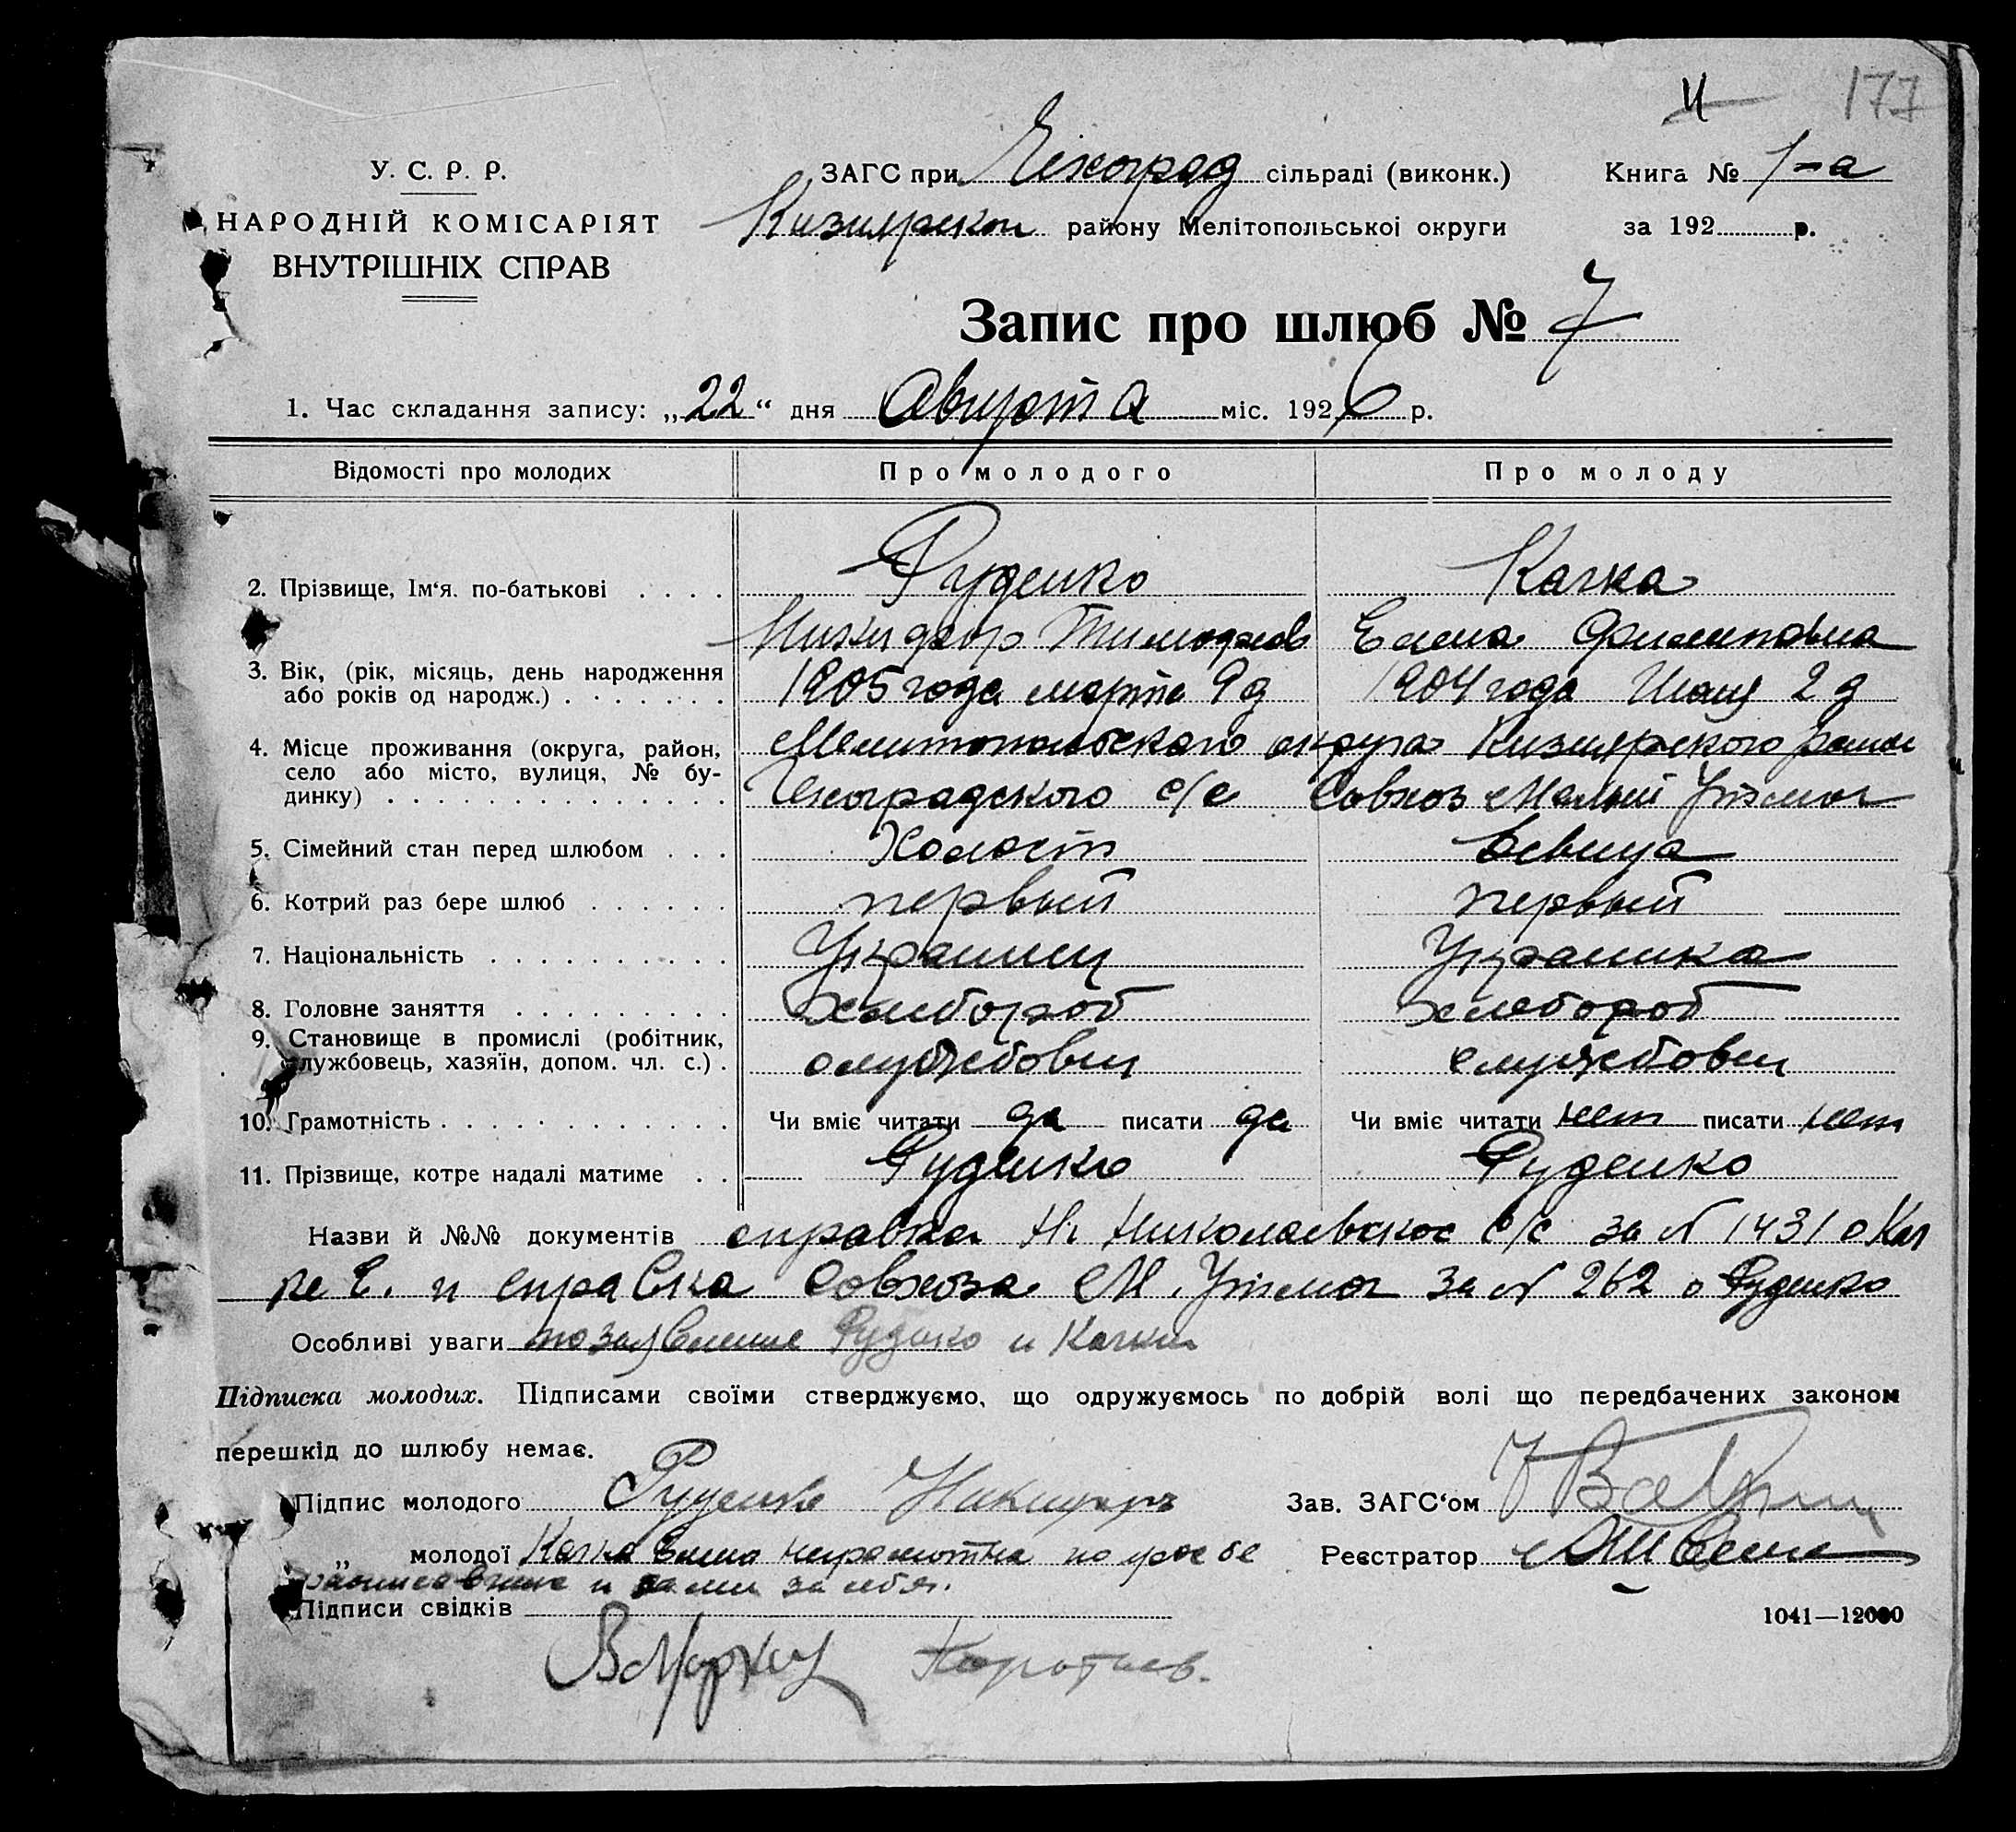 177
У. С. Р. Р.
НАРОДНІЙ КОМІСАРІЯТ
ВНУТРІШНІХ СПРАВ
ЗАГС при сільраді (виконк.)
Книга № 1-а
району Мелітопольської округи
за 192 р.
Запис про шлюб № 7
1. Час складання запису: „22“ дня Августа міс. 1926 р.
Відомості про молодих Про молодого Про молоду
2. Прізвище, Ім‘я. по-батькові Руденко Качка
Никифор Тимофеев Елена Филиповна
3. Вік, (рік, місяць, день народження
або років од народж.) 1905 года марта 9 д 1904 года 2 д
4. Місце проживання (округа, район,
село або місто, вулиця, № бу-
динку)
Мелитопольского округа Кизиярского
с/с Совхоз Малый Утлюг
5. Сімейний стан перед шлюбом Холост девица
6. Котрий раз бере шлюб первый первый
7. Національність Украинец Украинка
8. Головне заняття хлебороб хлебороб
9. Становище в промислі (робітник,
службовець, хазяїн, допом. чл. с.) службовец службовец
10. Грамотність Чи вміє читати да писати да Чи вміє читати нет писати нет
11. Прізвище, котре надалі матиме Руденко Руденко
Назви й №№ документів справка Н. Николаевское с/с за № 1431 о Кач
ке Е. и справка Совхоза М. Утлюг за № 262 о Руденко
Особливі уваги по заявление Руденко и Качки
Підписка молодих. Підписами своїми стверджуємо, що одружуємось по добрій волі що передбачених законом
перешкід до шлюбу немає.
Підпис молодого Руденко Никифор Зав. ЗАГС‘ом
„ молодої Качка Елена неграмотна по просьбе
Реєстратор
и за себя.
Підписи свідків
1041—12000
Коротаев.